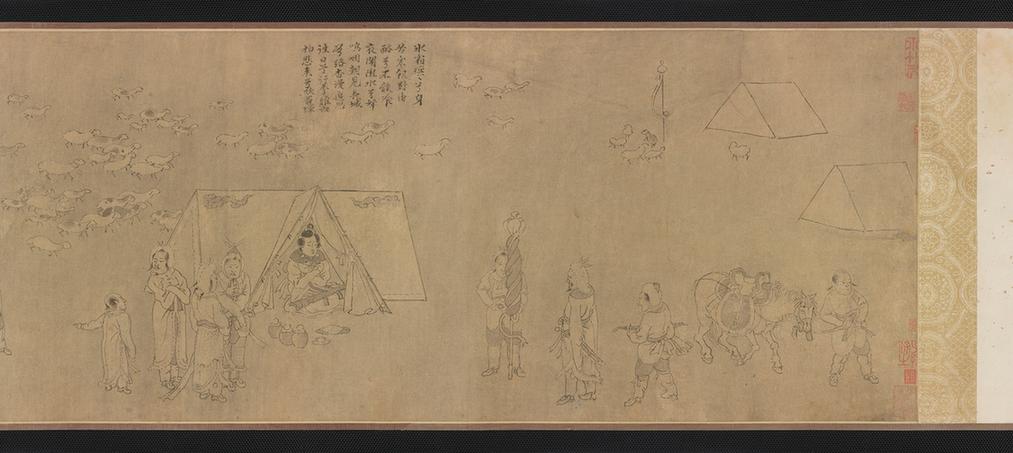 冰霜凜〻兮身
苦寒飢對肉
酪兮不能餐
夜聞隴水兮聲
嗚咽朝見長城
兮路杳漫追思
往日兮行李難六
拍悲來兮欲罷彈